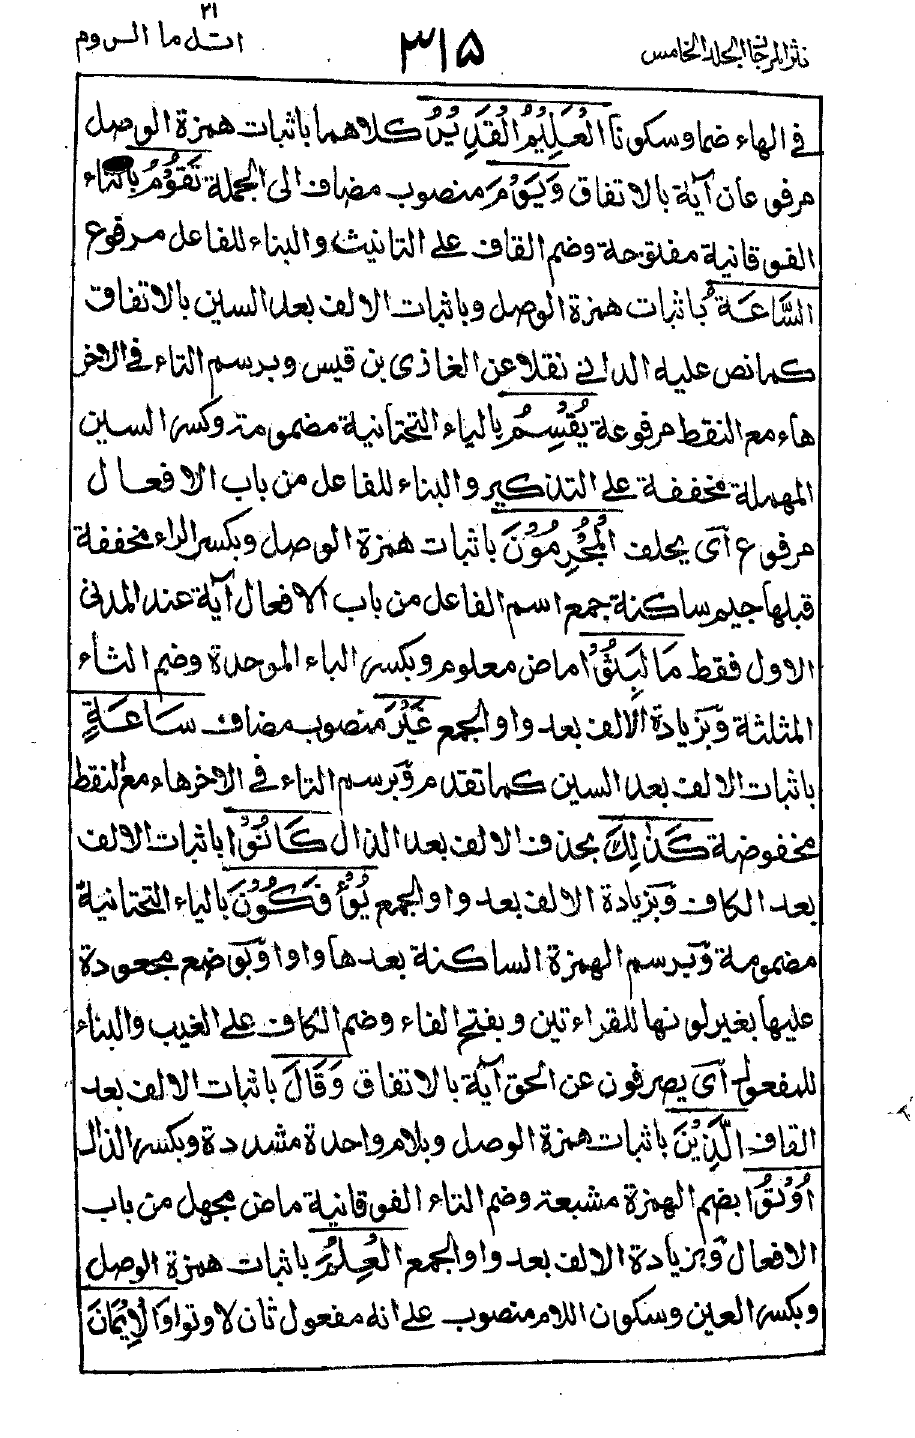 نثر المرجان المجلد الخامس ٣١٥ اتل ما الروم ٢١
في الهاء ضما وسكونا الْعَلِيْمُ الْقَدِيْرُ كلاهما باثبات همزة الوصل
مرفوعان آية بالاتفاق وَيَوْمَ منصوب مضاف الى الجملة تَقُوْمُ بالتاء
الفوقانية مفتوحة وضم القاف على التانيث والبناء للفاعل مرفوع
السَّاعَةُ باثبات همزة الوصل وباثبات الالف بعد السين بالاتفاق
كما نص عليه الداني نقلا عن الغازي بن قيس وبرسم التاء في الاخر
هاء مع النقط مرفوعة يُقْسِمُ بالياء التحتانية مضمومة وكسر السين
المهملة مخففة على التذكير والبناء للفاعل من باب الافعال
مرفوع أي يحلف الْمُجْرِمُوْنَ باثبات همزة الوصل وبكسر الراء مخففة
قبلها جيم ساكنة جمع اسم الفاعل من باب الافعال آية عند المدني
الاول فقط مَا لَبِثُوْا ماض معلوم وبكسر الباء الموحدة وضم الثاء
المثلثة وَبزيادة الالف بعد واو الجمع غَيْرَ منصوب مضاف سَاعَةٍ
باثبات الالف بعد السين كما تقدم وَبرسم التاء في الاخر هاء مع النقط
مخفوضة كَذٰلِكَ بحذف الالف بعد الذال كَانُوْا باثبات الالف
بعد الكاف وَبزيادة الالف بعد واو الجمع يُؤْفَكُوْنَ بالياء التحتانية
مضمومة وَبرسم الهمزة الساكنة بعدها واوا وَبوضع مجعودة
عليها بغير لونها للقراءتين وبفتح الفاء وضم الكاف على الغيب والبناء
للمفعول أي يصرفون عن الحق آية بالاتفاق وَقَالَ باثبات الالف بعد
القاف الَّذِيْنَ باثبات همزة الوصل وبلام واحدة مشددة وبكسر الذال
اُوْتُوا بضم الهمزة مشبعة وضم التاء الفوقانية ماض مجهل من باب
الافعال وَبزيادة الالف بعد واو الجمع الْعِلْمَ باثبات همزة الوصل
وبكسر العين وسكون اللام منصوب على انه مفعول ثان لاوتوا وَالْاِيْمَانَ